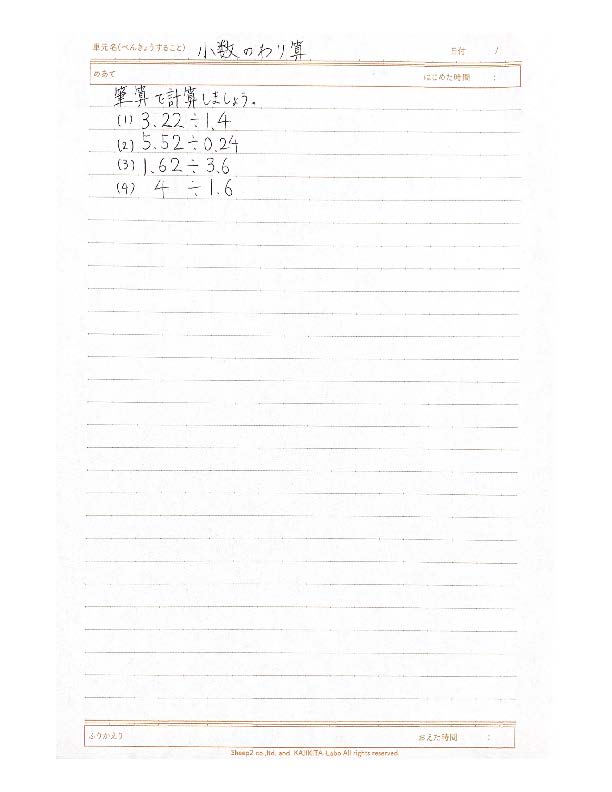 単元名(べんきょうすること) 小数のわり算 日付 /
めあて はじめた時間 :
筆算で計算しましょう。
(1) 3.22÷1.4
(2) 5.52÷0.24
(3) 1.62÷3.6
(4) 4 ÷1.6
ふりかえり おえた時間 :
Sheep2 co.,ltd. and KAJIKITA-Labo All rights reserved.